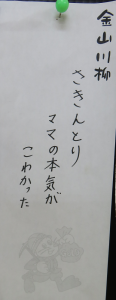 金山川柳
さきんとり
ママの本気が
こわかった